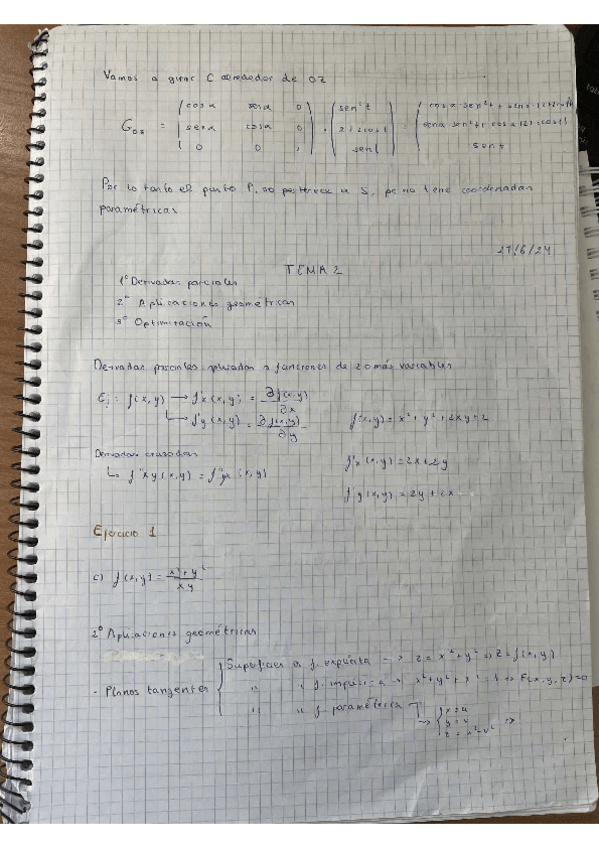 Vamos a girar C alrededor de OZ
G = ( cos α sen α 0 ) ( sen² t ) =
sen α cos α 0
0 0 sen t sen t
Por lo tanto el punto P, no pertenece a S, pq no tiene coordenadas
paramétricas
27/6/24
TEMA 2
1º Derivadas parciales
2º Aplicaciones geométricas
3º Optimización
Derivadas parciales aplicadas a funciones de 2 o más variables
Ej: f(x,y) → f'x (x,y) = ∂f(x,y) / ∂x
↳ f'y (x,y) = ∂f(x,y) / ∂y
f(x,y) = x² + y² + 2xy = 2
Derivadas cruzadas
↳ f''xy (x,y) = f''yx (x,y)
f'x (x,y) = 2x + 2y
f'y (x,y) = 2y + 2x
Ejercicio 1
c) f(x,y) = x² + y² / xy
2º Aplicaciones geométricas
- Planos tangentes
Superficies f. explícita → z = x² + y² ⇒ z = f(x,y)
" " f. implícita → F(x,y,z) = 0
" " f. paramétrica
→ { x = u
y = v